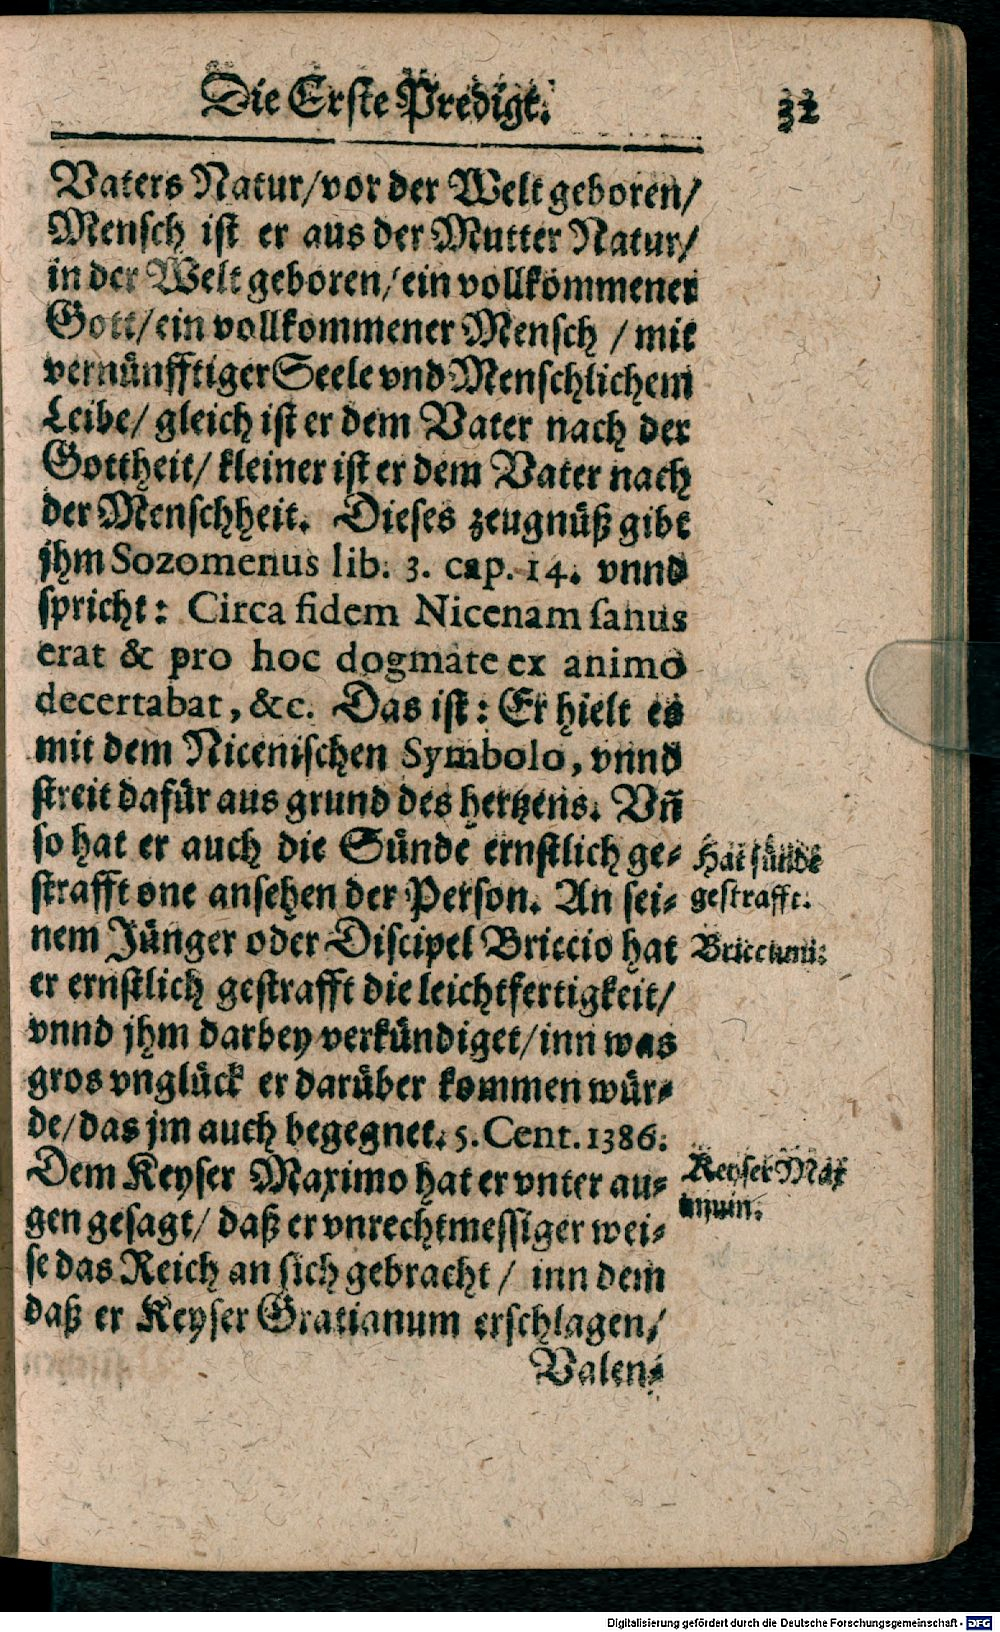 Die Erste Predigt. 32
Vaters Natur/vor der Welt geboren/
Mensch ist er aus der Mutter Natur/
in der Welt geboren/ein vollkommener
Gott/ein vollkommener Mensch / mit
vernünfftiger Seele vnd Menschlichem
Leibe/ gleich ist er dem Vater nach der
Gottheit/ kleiner ist er dem Vater nach
der Menschheit. Dieses zeugnüß gibt
jhm Sozomenus lib. 3. cap. 14. vnnd
spricht: Circa fidem Nicenam ſanus
erat & pro hoc dogmate ex animo
decertabat, &c. Das ist: Er hielt es
mit dem Nicenischen Symbolo, vnnd
streit dafür aus grund des hertzens. Vñ
so hat er auch die Sünde ernstlich ge-
strafft one ansehen der Person. An sei-
nem Jünger oder Discipel Briccio hat
er ernstlich gestrafft die leichtfertigkeit/
vnnd jhm darbey verkündiget/inn was
gros vnglück er darüber kommen wür-
de/das jm auch begegnet. 5. Cent. 1386.
Dem Keyser Maximo hat er vnter au-
gen gesagt/ daß er vnrechtmessiger wei-
se das Reich an sich gebracht / inn dem
daß er Keyser Gratianum erschlagen/
Valen-
Hat sünde
gestrafft.
Briccium:
Keyser Max
imum.
Digitalisierung gefördert durch die Deutsche Forschungsgemeinschaft - DFG